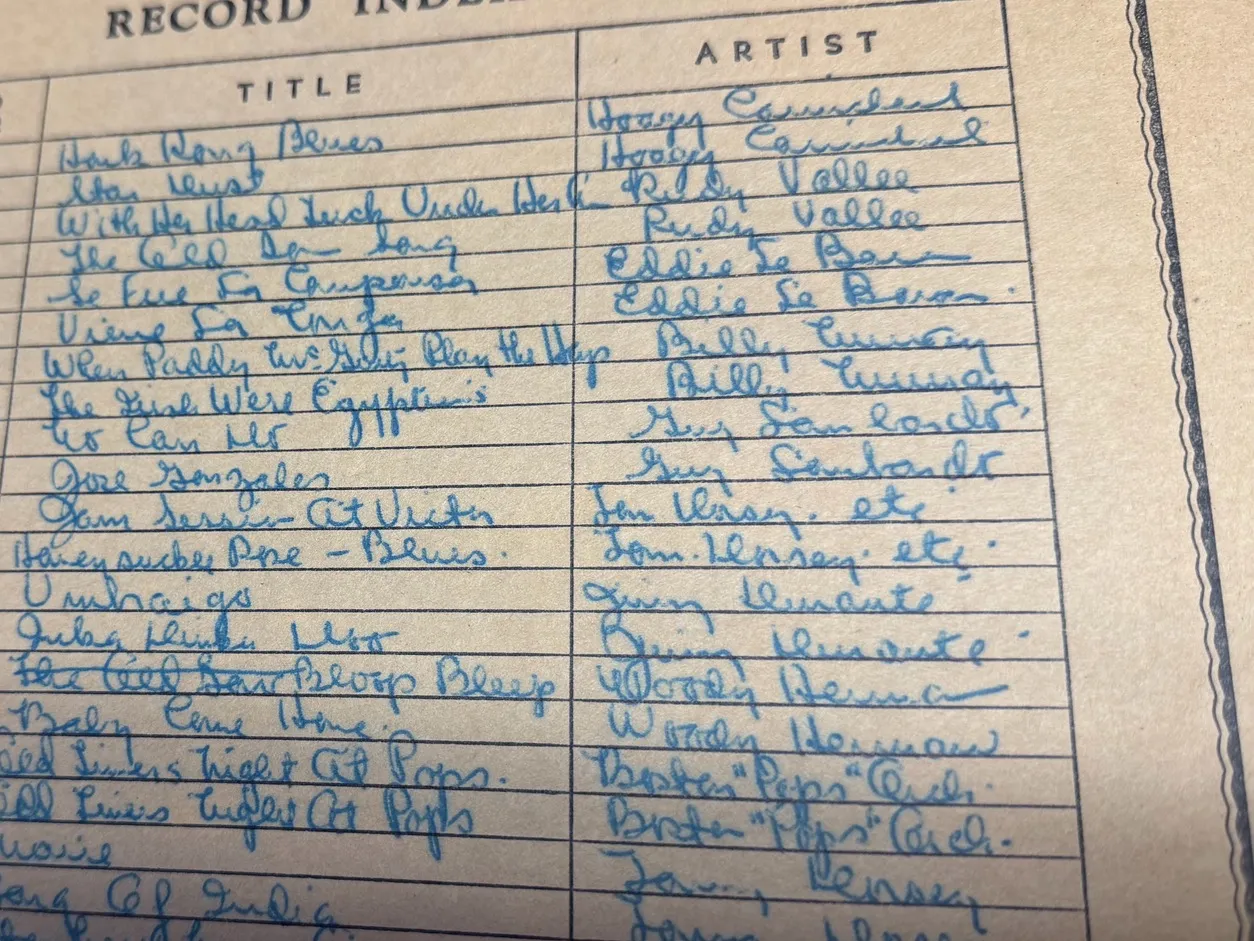 RECORD INDE
TITLE ARTIST
Honk Kong Blues Hoagy Carmichael
Star Dust Hoagy Carmichael
With Her Head Tuck Under Her Rudy Vallee
The Old Sow Song Rudy Vallee
Se Fue La Eddie Le Baron
Viene La Conga Eddie Le Baron.
When Paddy McGinty Play the Harp Billy Murray
The Irish Were Egyptians Billy Murray
No Can Do Guy Lombardo
Jose Gonzales Guy Lombardo
Jam Session At Victor Tom Dorsey. etc
Honeysuckle Rose - Blues. Tom. Dorsey. etc.
Umbriago Jimmy Durante
Inka Dinka Doo Jimmy Durante.
The Old Sow Bloop Bleep Woody Herman
Baby Come Home. Woody Herman
Old Timers Night At Pops. Boston "Pops" Orch.
Old Timers Night At Pops Boston "Pops" Orch.
Marie Tommy Dorsey
Song Of India Tommy